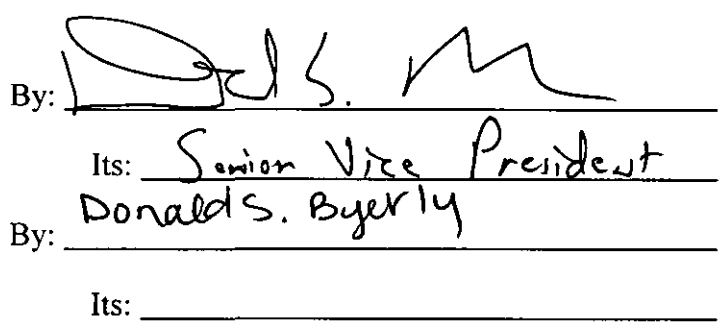 By:
Its: Senior Vice President
Donald S. Byerly
By:
Its: